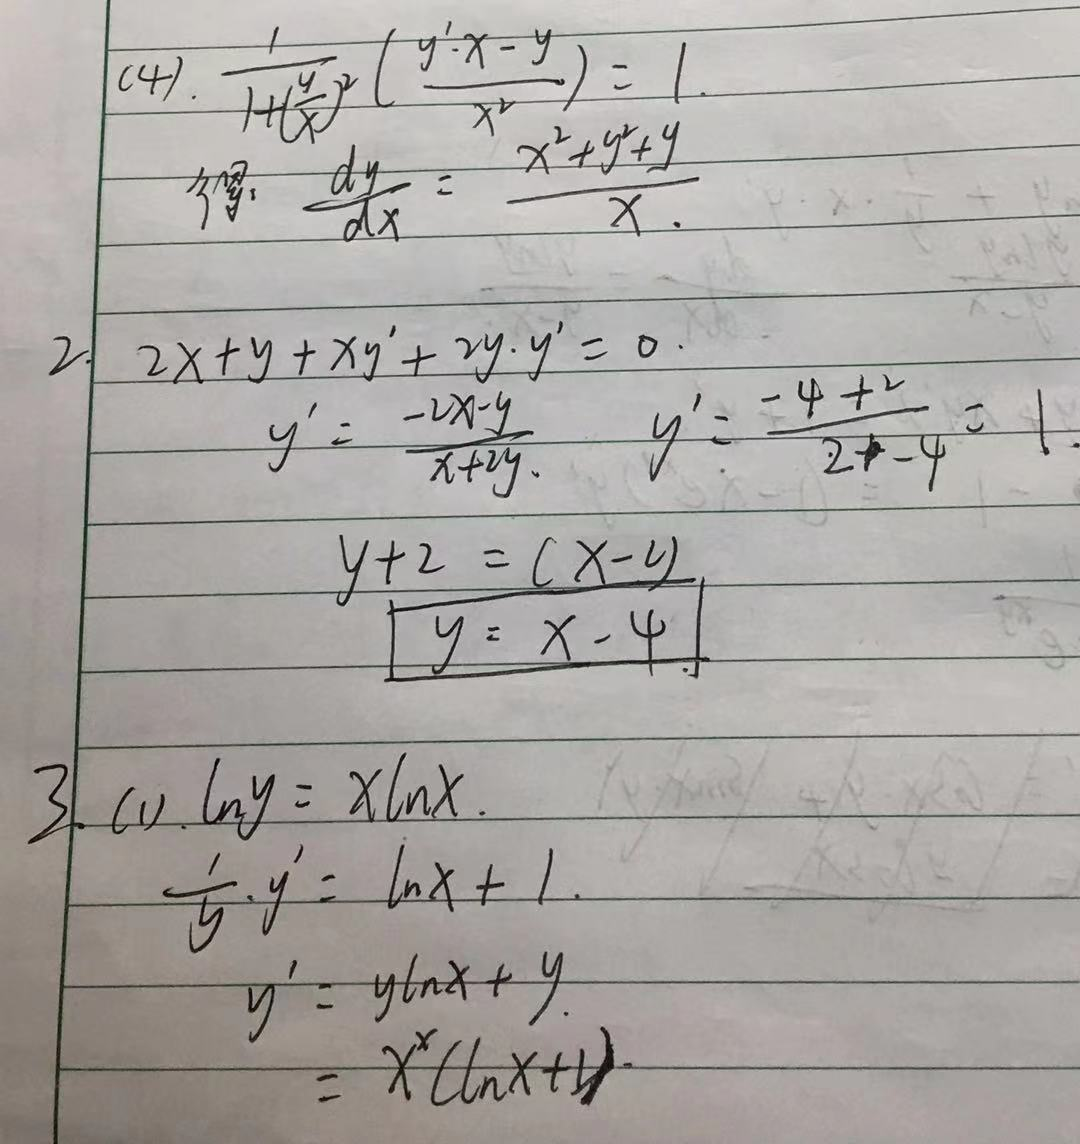 (4). 1/(1+(y/x)²) ( (y'·x - y)/x² ) = 1.
得: dy/dx = (x²+y²+y)/x.
2. 2x+y+xy'+2y·y' = 0.
y' = (-2x-y)/(x+2y). y' = (-4+2)/(2-4) = 1.
y+2 = (x-2)
y = x-4.
3. (1). lny = xlnx.
1/y · y' = lnx + 1.
y' = ylnx + y.
= x^x(lnx+1).